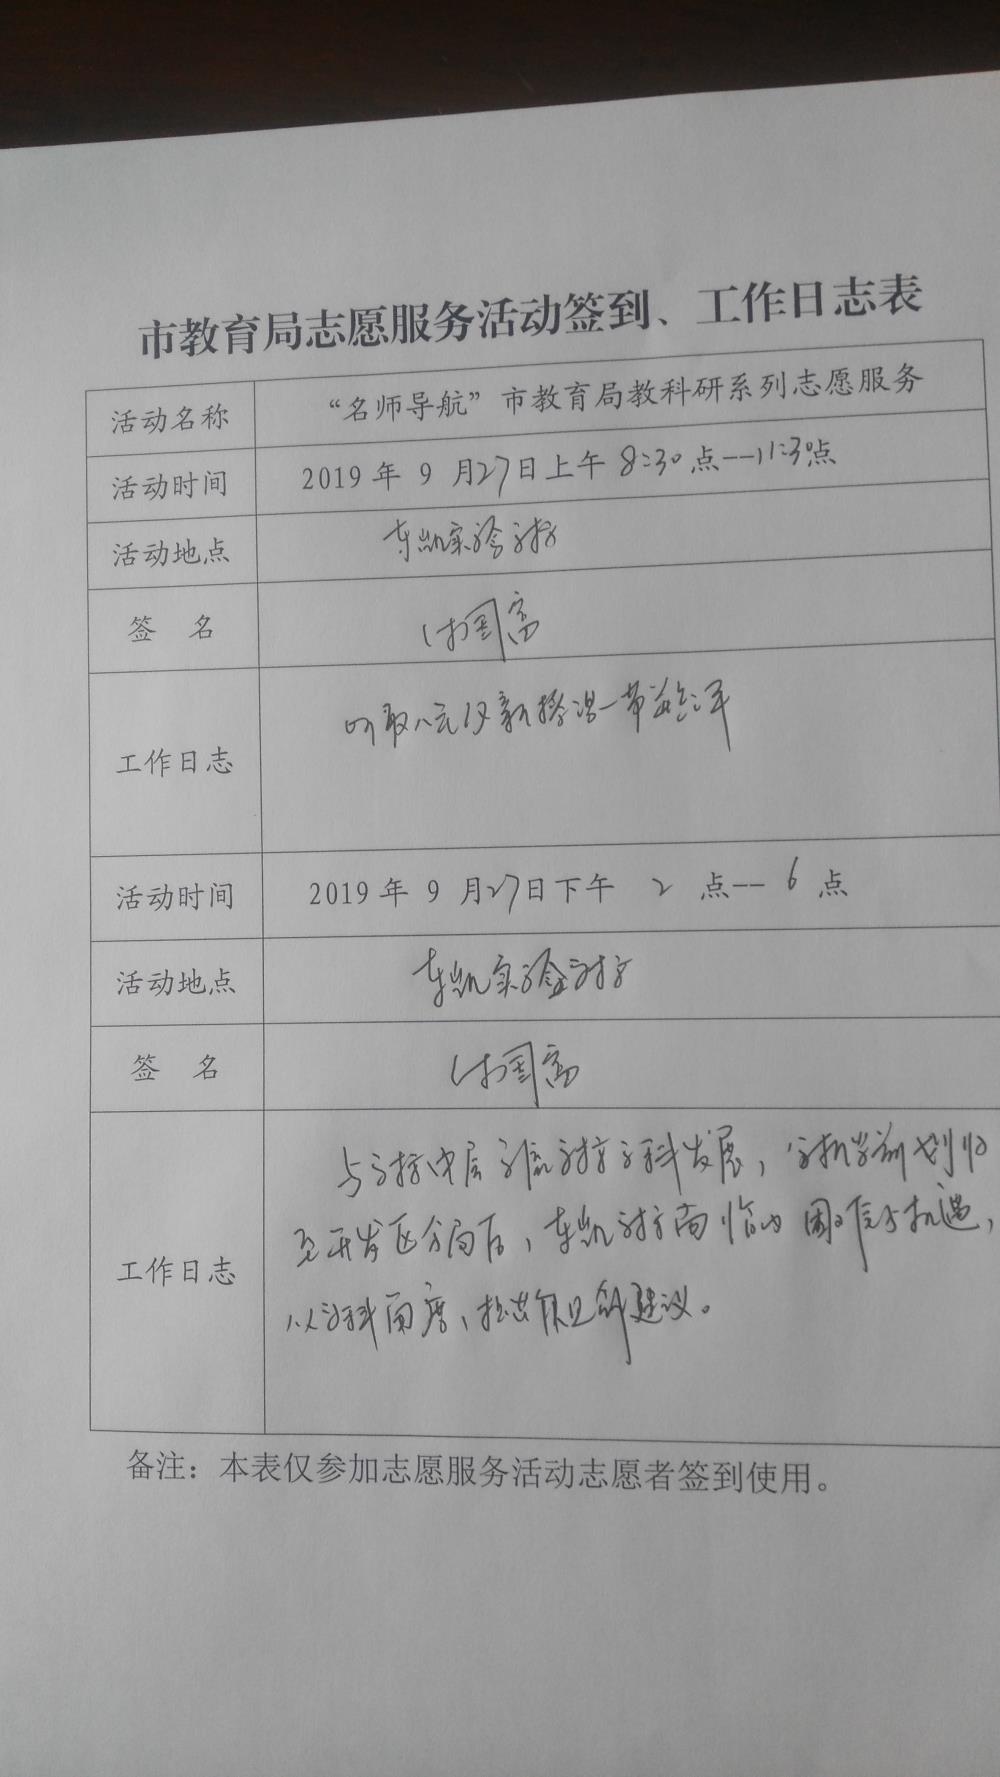 市教育局志愿服务活动签到、工作日志表
活动名称 “名师导航”市教育局教科研系列志愿服务
活动时间 2019年9月27日上午8:30点--11:30点
活动地点 东凯实验学校
签 名 国富
工作日志 听取
活动时间 2019年9月27日下午2点--6点
活动地点 东凯实验学校
签 名 国富
工作日志 与学校中层 学校学科发展，划归
至开发区分局后，东凯学校面临的困难与机遇，
从学科角度，提出 建议。
备注：本表仅参加志愿服务活动志愿者签到使用。